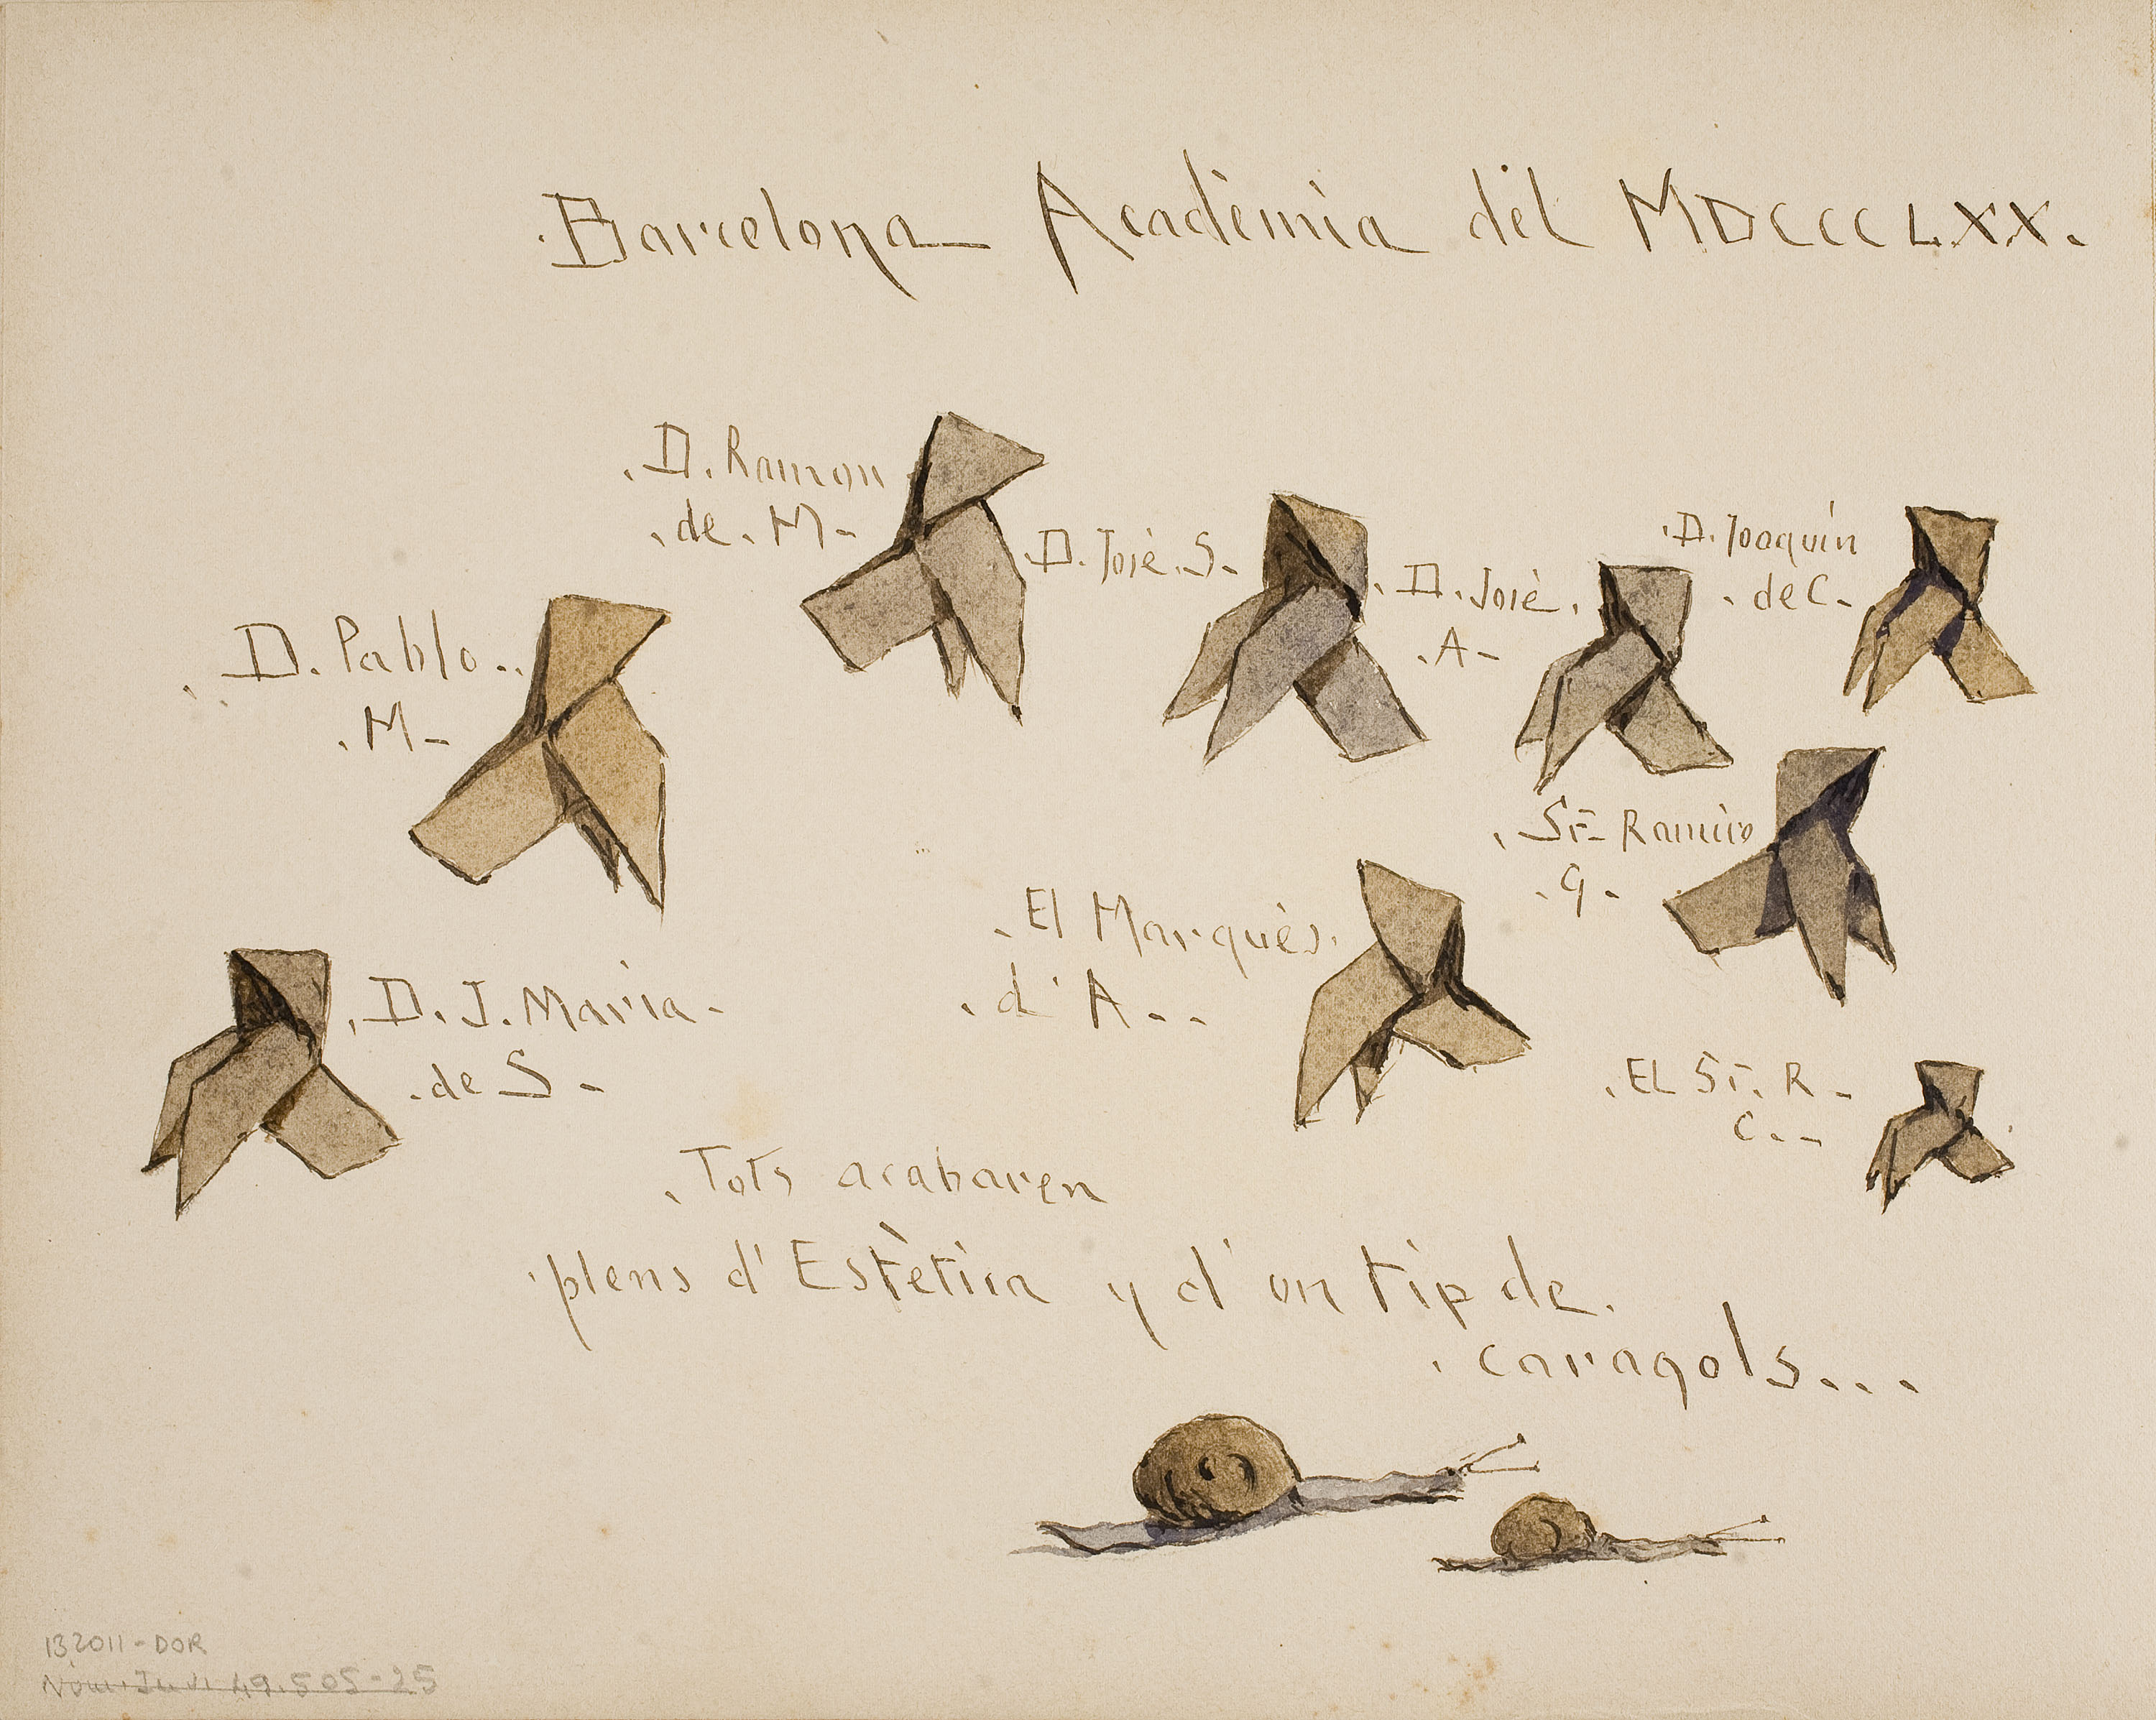 .Barcelona_ Acadèmia del MDCCCLXX.
.D. Ramon
.de. M-
D. José. S-
.D. José.
.A-
.D. Joaquin
.de C-
.D. Pablo..
.M-
.Sr- Ramiro
.G-
.El Marqués.
.d'A--
.D. J. Maria-
.de S-
.EL Sr. R-
C.--
.Tots acabaren
plens d'Estètica y d'un tip de.
.caragols...
132011-DOR
Nom. Inv. 49.505-25